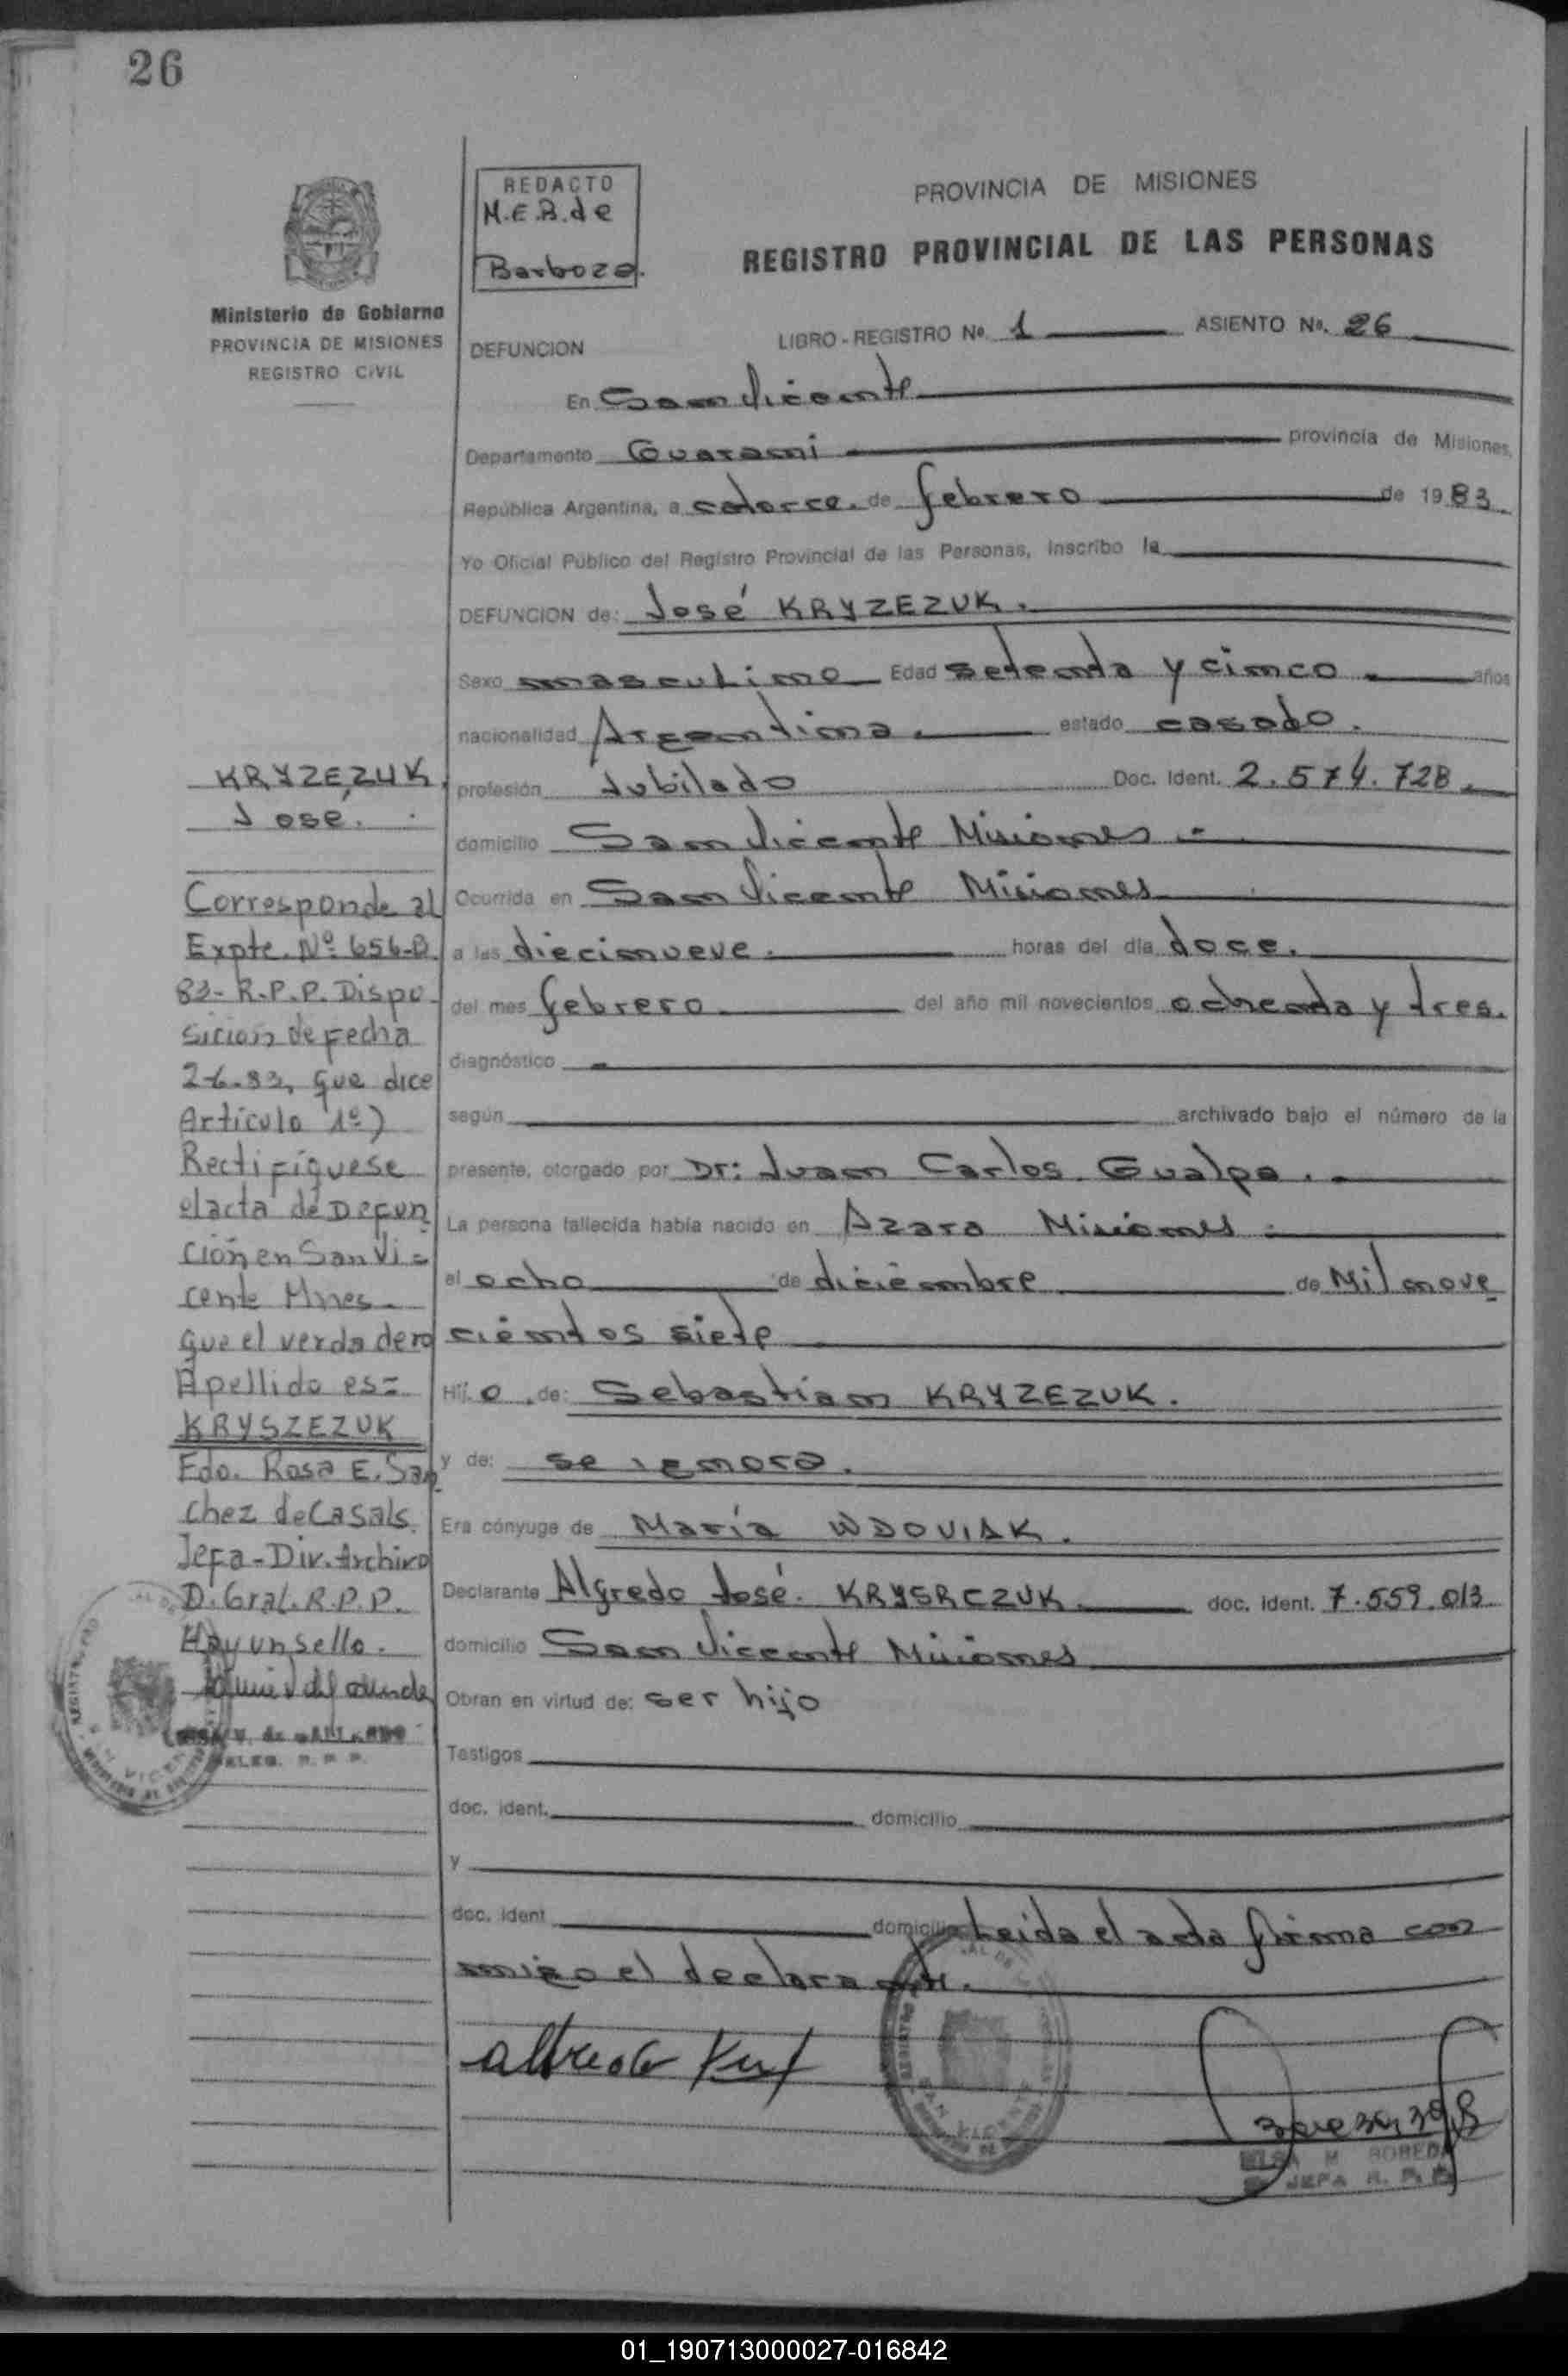 26
REDACTO
M.E.B. de
Barboza.
PROVINCIA DE MISIONES
REGISTRO PROVINCIAL DE LAS PERSONAS
Ministerio de Gobierno
PROVINCIA DE MISIONES
REGISTRO CIVIL
DEFUNCION LIBRO-REGISTRO Nº 1 ASIENTO Nº. 26
En San Vicente
Departamento Guarani provincia de Misiones,
República Argentina, a catorce. de febrero de 1983.
Yo Oficial Público del Registro Provincial de las Personas, inscribo la
DEFUNCION de: José KRYZEZUK.
Sexo masculino Edad setenta y cinco años
nacionalidad Argentina. estado casado.
profesión Jubilado Doc. Ident. 2.574.728.
domicilio San Vicente Misiones
Ocurrida en San Vicente Misiones
a las diecinueve. horas del día doce.
del mes febrero. del año mil novecientos ochenta y tres.
diagnóstico
según archivado bajo el número de la
presente, otorgado por Dr: Juan Carlos Gualpa.
La persona fallecida había nacido en Azara Misiones
el ocho de diciembre de Mil nove
cientos siete
Hij.o de: Sebastian KRYZEZUK.
y de: se ignora.
Era cónyuge de Maria WDOVIAK.
Declarante Alfredo José. KRYSRCZUK. doc. ident. 7.559.013
domicilio San Vicente Misiones
Obran en virtud de: ser hijo
Testigos
doc. ident. domicilio
y
doc. ident domicilio Leida el acta firma con
migo el declarante.
KRYZEZUK,
José.
Corresponde al
Expte. Nº 656-B.
83- R.P.P. Dispo-
sicion de Fecha
2-6-83, que dice
Artículo 1º)
Rectifíquese
el acta de Defun-
ción en San Vi=
cente Mnes.
que el verdadero
Apellido es=
KRYSZEZUK
Fdo. Rosa E. San
chez de Casals.
Jefa-Div. Archivo
D. Gral. R.P.P.
Hay un sello.
DELEG. R. P. P.
SAN VICENTE
Alfredo
SAN VICENTE
JEFA R. P. P.
01_190713000027-016842